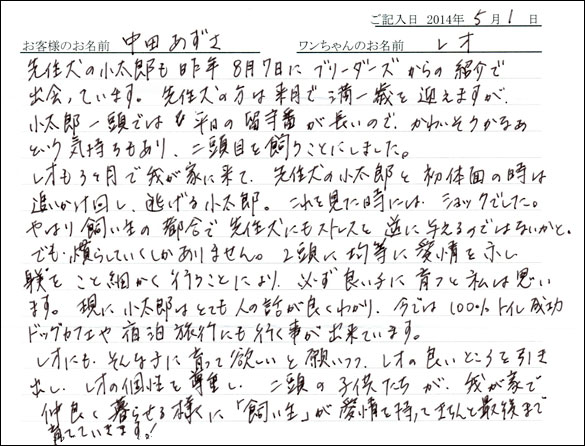 ご記入日 2014年 5月 1日
お客様のお名前 中田あずさ ワンちゃんのお名前 レオ
先住犬の小太郎も昨年8月7日にブリーダーズからの紹介で
出会っています。先住犬の方は来月で満一歳を迎えますが、
小太郎一頭では平日の留守番が長いので、かわいそうかなぁ
という気持ちもあり、二頭目を飼うことにしました。
レオも3ヶ月で我が家に来て、先住犬の小太郎と初体面の時は
追いかけ回し、逃げる小太郎。これを見た時には、ショックでした。
やはり飼い主の都合で先住犬にもストレスと逆に与えるのではないかと。
でも慣らしていくしかありません。2頭に均等に愛情を示し
躾をこと細かく行うことにより、必ず良い子に育つと私は思い
ます。現に小太郎はとても人の話が良くわかり、今では100%トイレ成功
ドッグカフェや宿泊旅行にも行く事が出来ています。
レオにもそんな子に育って欲しいと願いつつ、レオの良いところを引き
出し、レオの個性を尊重し、二頭の子供たちが、我が家で
仲良く暮らせる様に「飼い主」が愛情を持ってきちんと最後まで
育てていきます!